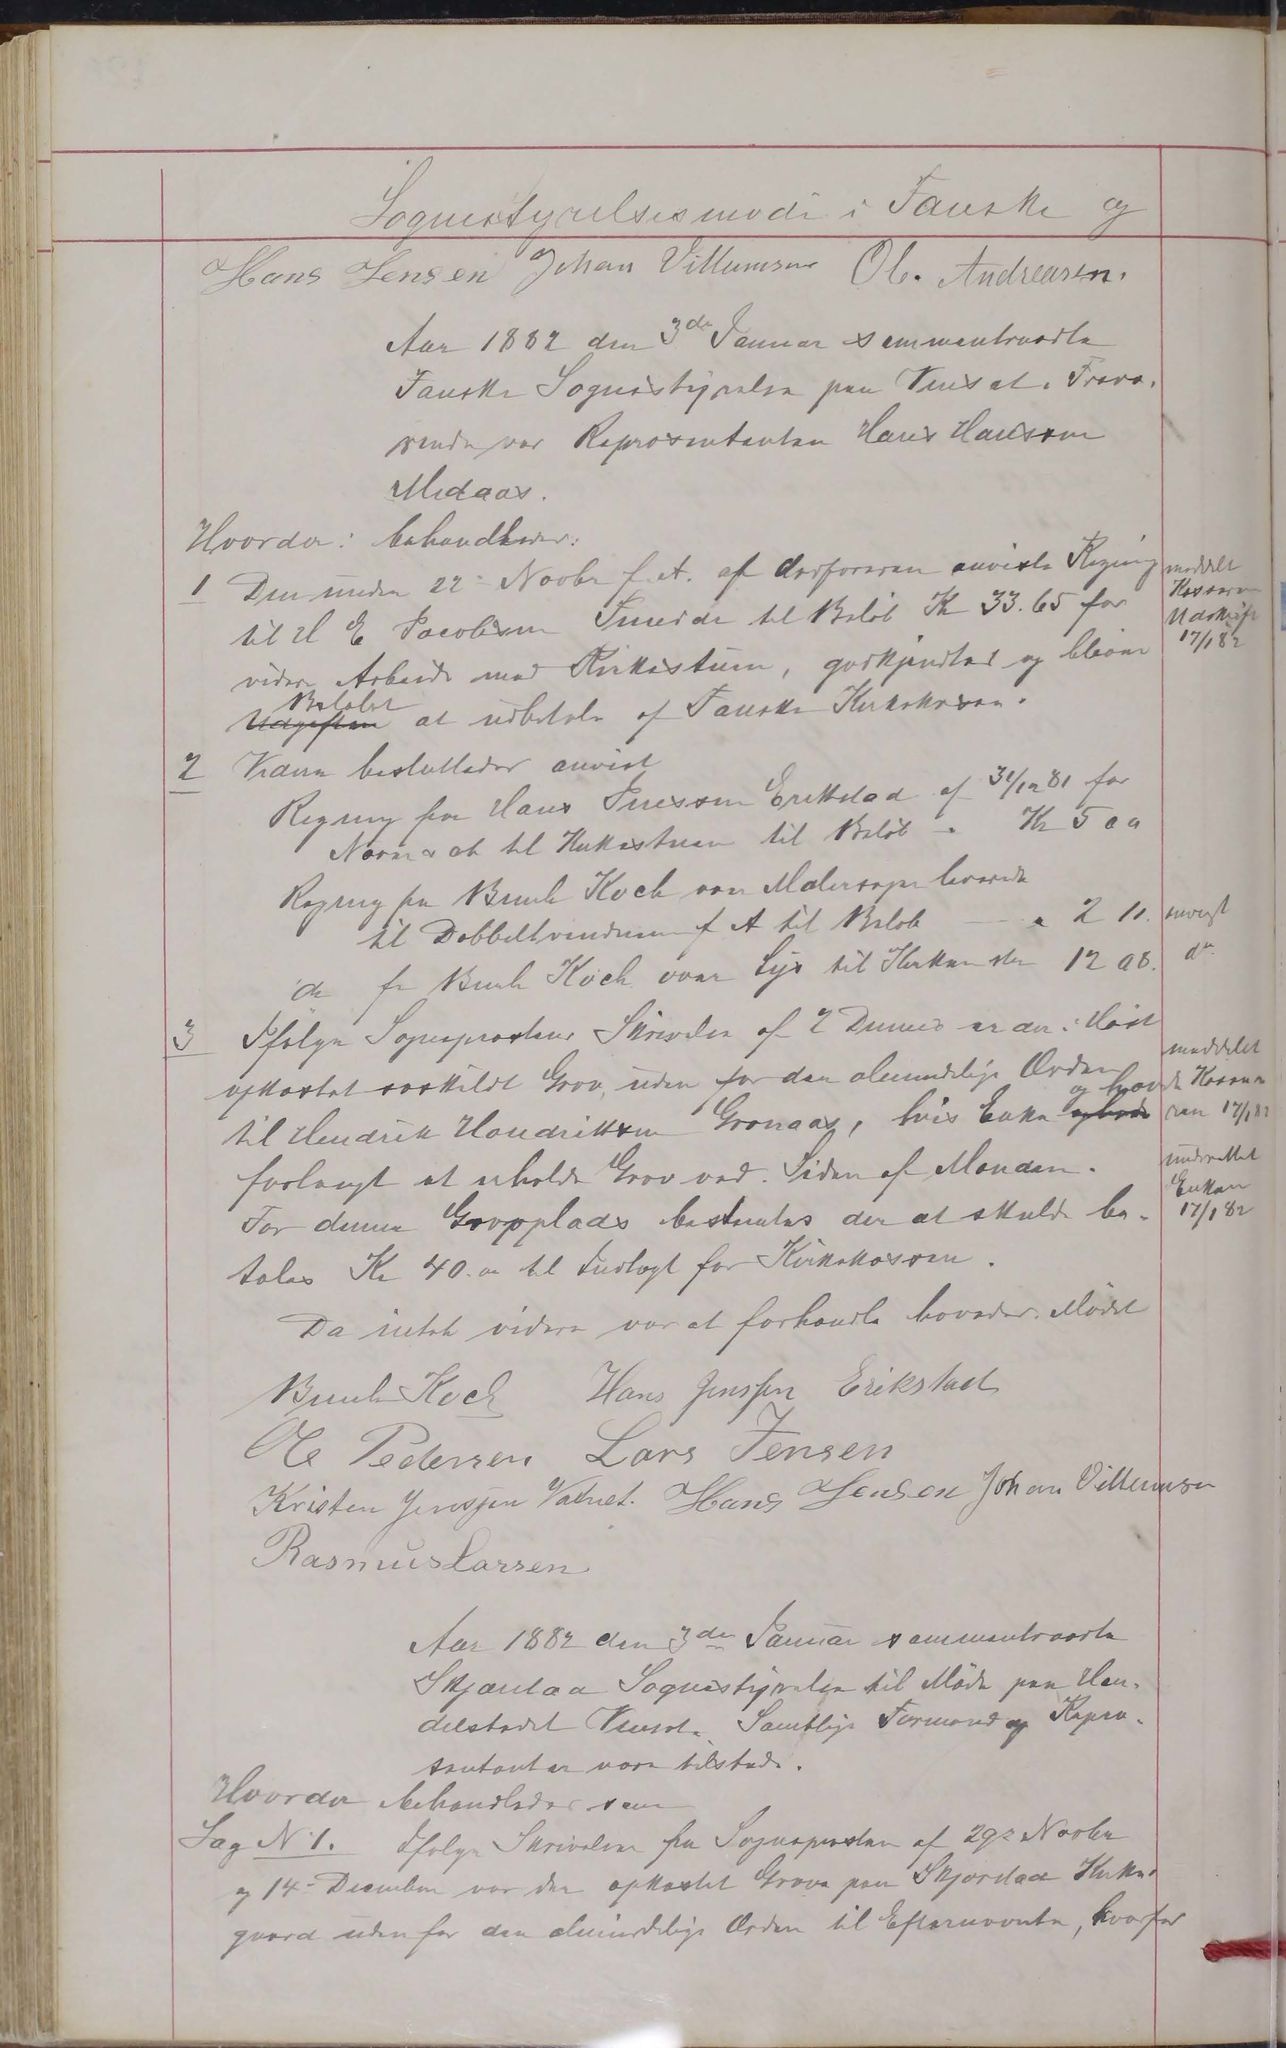 Sognestyrelsesmøde i Fauske og
Hans Jensen Johan Villumsen Ole Andreasen.
Aar 1882 den 3de Januar sammentraadte
Fauske Sognestyrelse paa Venset. Fravæ-
rende var Repræsentanten Hans Hansen
Medaas.
Hvorda: behandledes:
1 Den under 22- Novbr f. A. af Ordføreren anviste Regning
til H E Jacobsen Smerde til Beløb Kr 33.65 for
videre Arbeide med Kirkestuen, godkjendtes og bliver
Beløbet
Udgiften at udbetale af Fauske Kirkekasse.
2 Videre besluttedes anvist
Regning fra Hans Jensson Erikstad af 31/12 81 for
til Kirkestuen til Beløb - Kr 5 00
Regning fra Bernh Koch over Malersager leverede
til Dobbeltvinduer f A til Beløb - " 2 11.
do fra Bernh Koch over Lys til Kirken stor 12 08.
3 Ifølge Sogneprestens Skrivelse af 2 Dennes er der i Høst
opkastet særskildt Grav, uden for den almindelige Orden
og havde
til Hendrik Hendrikksen Grønaas, hvis Enke
forlangt at erholde Grav ved Siden af Manden.
For denne Gravplads bestemtes der at skulde be-
tales Kr 40.00 til Indtægt for Kirkekassen.
Da intet videre var at forhandle hævedes Mødet
Bernh Koch Hans Jenssen Erikstad
Ole Pedersen Lars Jensen
Kristen Jenssen Valnet. Hans Jensen Johan Villumsen
Rasmus Larsen
Aar 1882 den 3de Januar sammentraadte
Skjerstad Sognestyrelse til Møde paa Han-
delstedet Venset. Samtlige Formænd og Repræ-
sentanter vare tilstede.
Hvorda behandledes som
Sag N 1. Ifølge Skrivelser fra Sognepresten af 29- Novbr
og 14- December var der opkastet Grave paa Skjerstad Kirke-
gaard uden for den almindelige Orden til Efternævnte, hvorfor
meddelt
Kasserer
Udskrift
17/1 82
anvist
do
meddelet
Kassere-
ren 17/1 82
underrettet
Enken
17/1 82